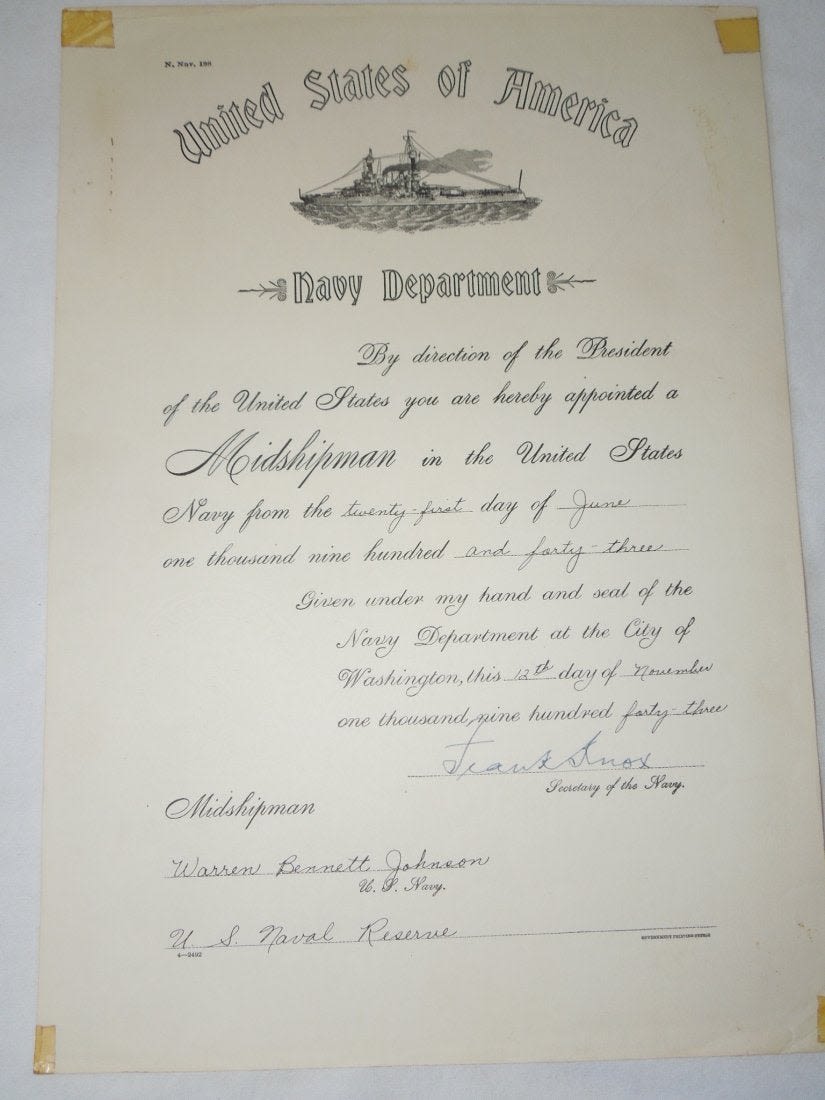 N. Nav. 198
United States of America
Navy Department
By direction of the President
of the United States you are hereby appointed a
Midshipman in the United States
Navy from the twenty-first day of June
one thousand nine hundred and forty-three
Given under my hand and seal of the
Navy Department at the City of
Washington, this 12th day of November
one thousand nine hundred forty-three
Frank Knox
Secretary of the Navy.
Midshipman
Warren Bennett Johnson
U. S. Navy.
U. S. Naval Reserve
4—2492
GOVERNMENT PRINTING OFFICE